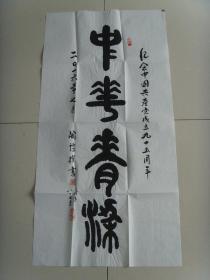 纪念中国共产党成立九十五周年
中華脊梁
二〇一六年
书